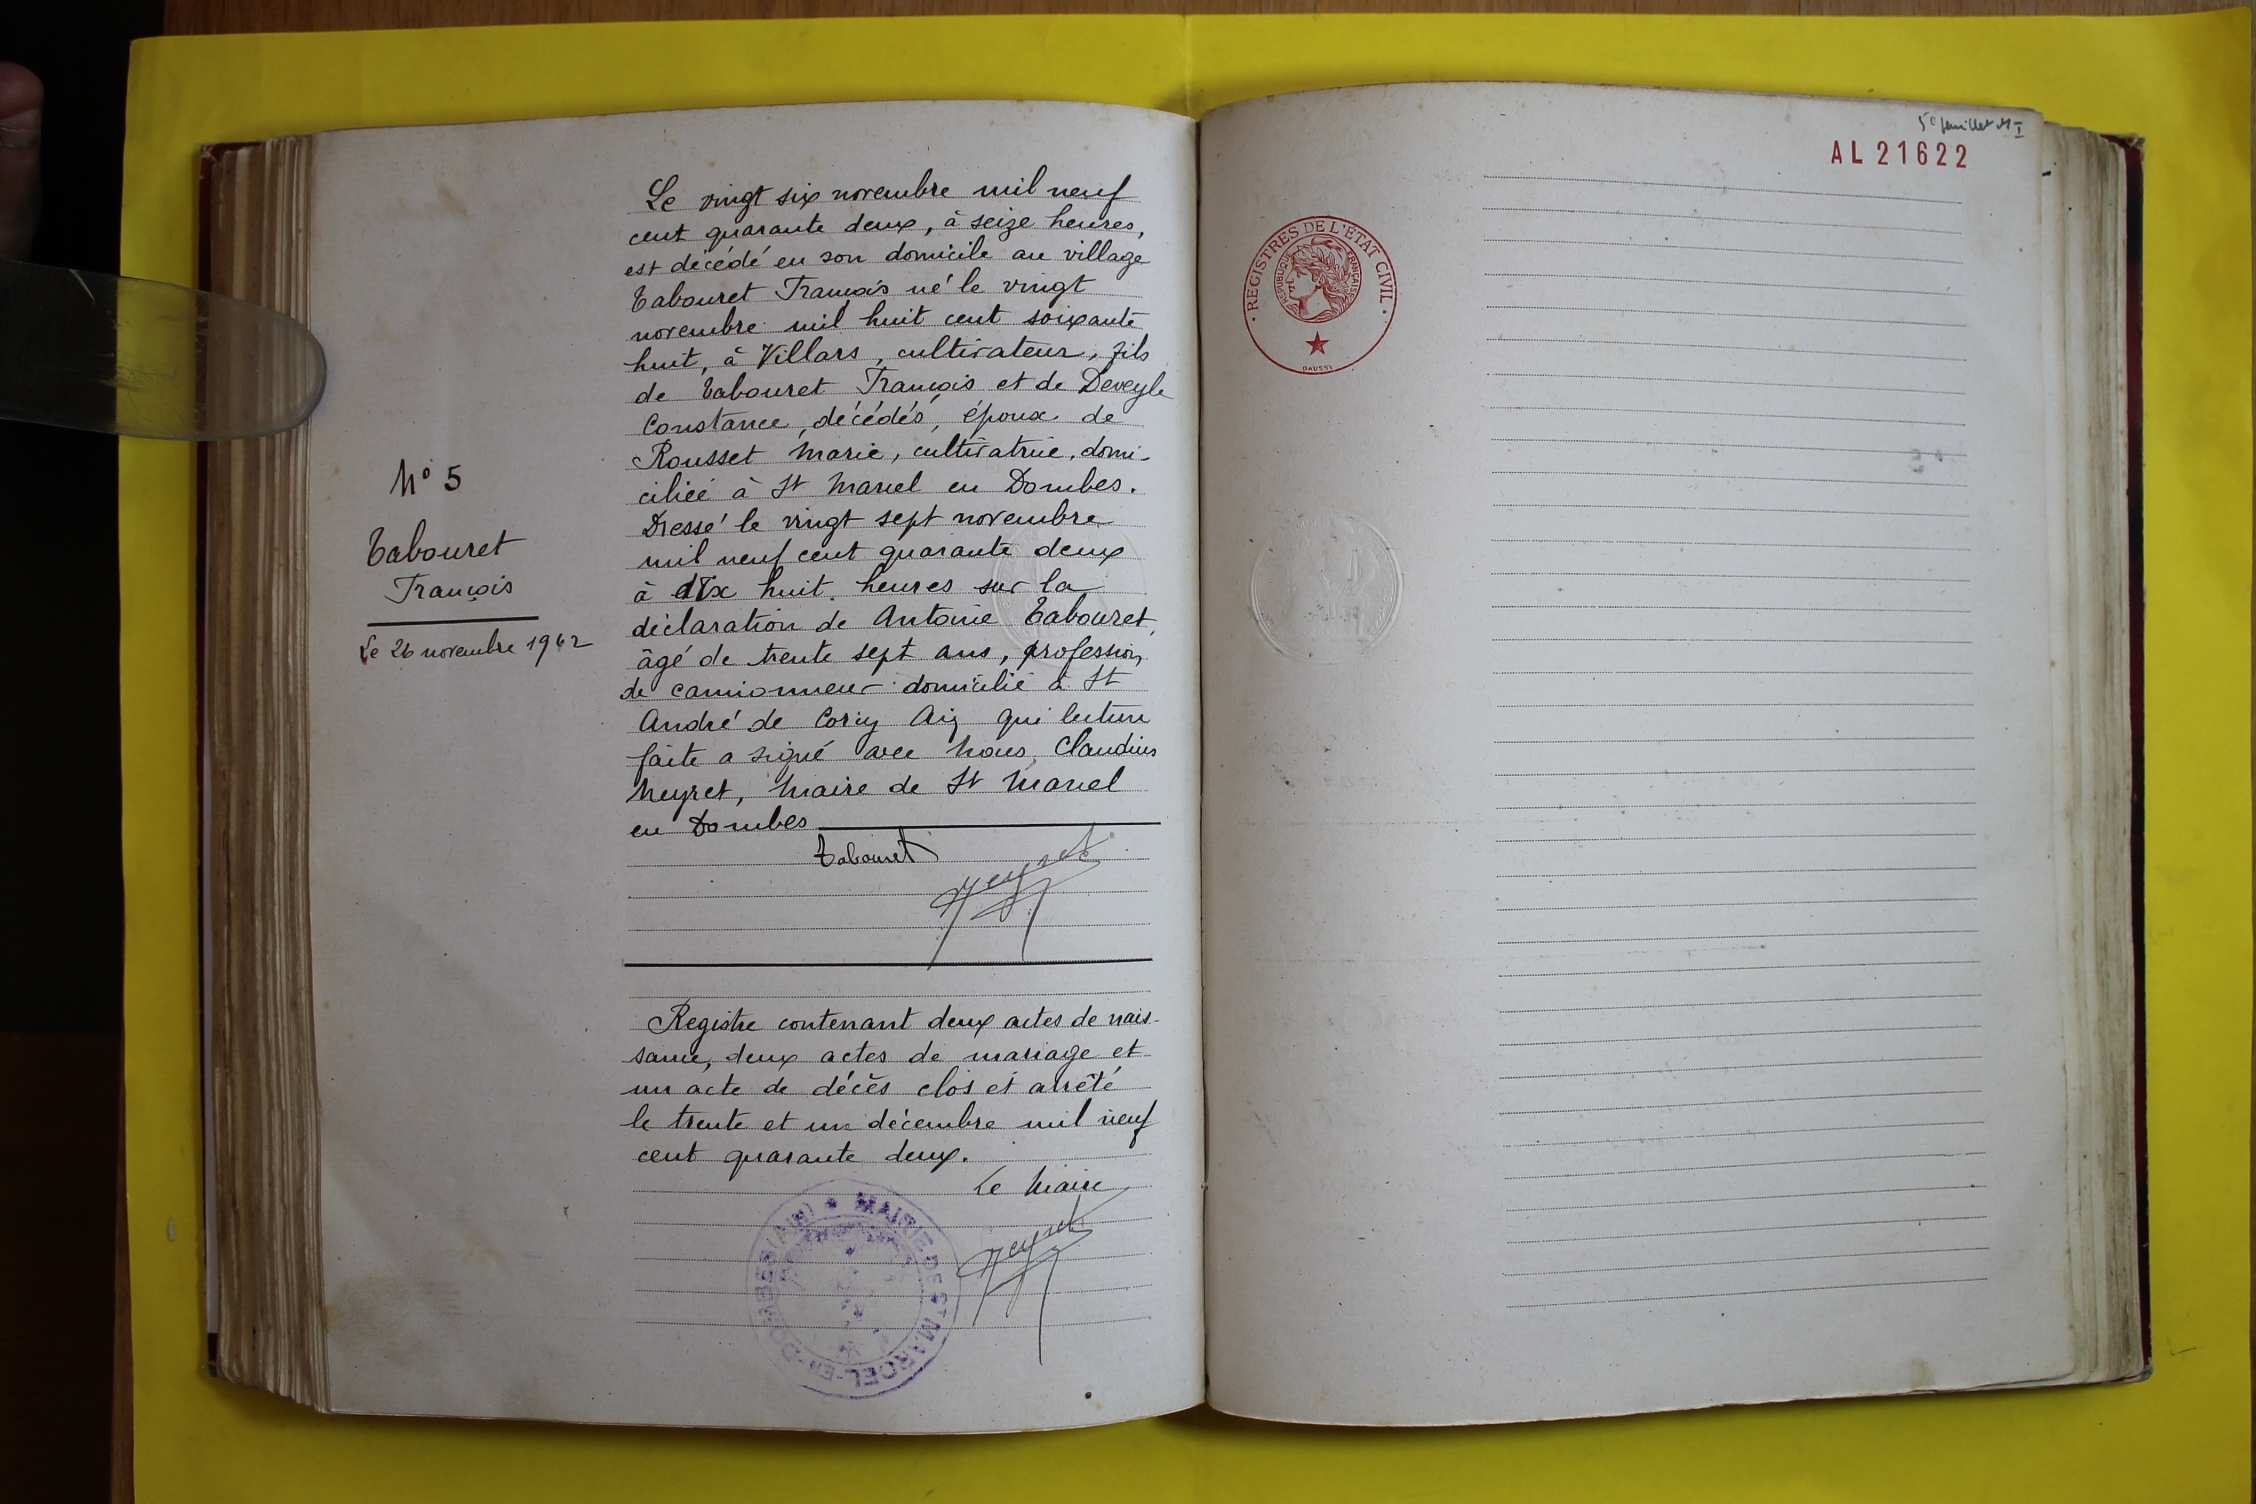 N° 5
Tabouret
François
Le 26 novembre 1942
Le vingt six novembre mil neuf
cent quarante deux, à seize heures,
est décédé en son domicile au village
Tabouret François né le vingt
novembre mil huit cent soixante
huit, à Villars, cultivateur, fils
de Tabouret François et de Deveyle
Constance, décédés, époux de
Rousset Marie, cultivatrice, domi-
ciliée à St Marcel en Dombes.
Dressé le vingt sept novembre
mil neuf cent quarante deux
à dix huit heures sur la
déclaration de Antoine Tabouret,
âgé de trente sept ans, profession
de camionneur domicilié à St
André de Corcy Ain qui lecture
faite a signé avec Nous, Claudius
Neyret, Maire de St Marcel
en Dombes
Tabouret
Neyret
Registre contenant deux actes de nais-
sance, deux actes de mariage et
un acte de décès clos et arrêté
le trente et un décembre mil neuf
cent quarante deux.
Le Maire
Neyret
MAIRIE DE ST MARCEL-EN-DOMBES (AIN)
5e feuillet
AL 21622
REGISTRES DE L'ÉTAT CIVIL
RÉPUBLIQUE FRANÇAISE